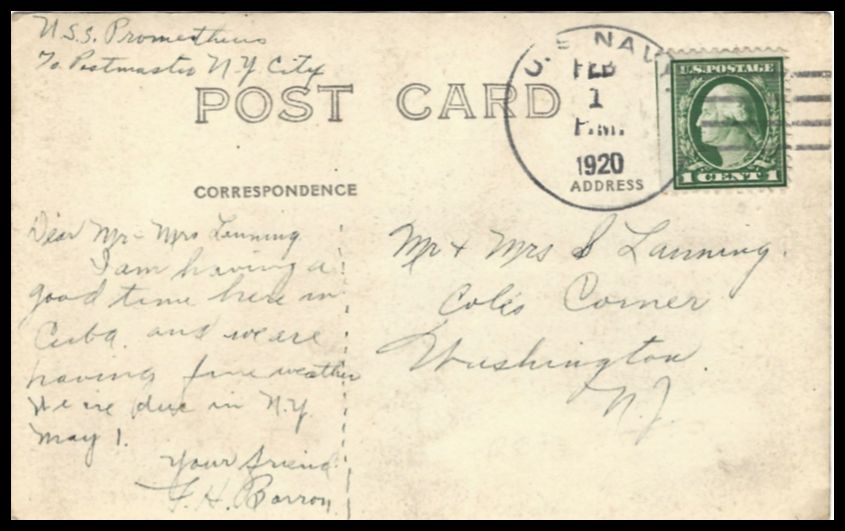 U.S.S. Prometheus
℅ Postmaster N.Y. City
POST CARD
U.S. NAVY
FEB
1
P.M.
1920
U.S. POSTAGE
1 CENT 1
CORRESPONDENCE
ADDRESS
Dear Mr - Mrs Lanning
I am having a
good time here in
Cuba. and we are
having fine weather
We are due in N.Y.
May 1.
Your friend
F. H. Barron
Mr & Mrs S Lanning.
Coles Corner
Washington.
N.J.